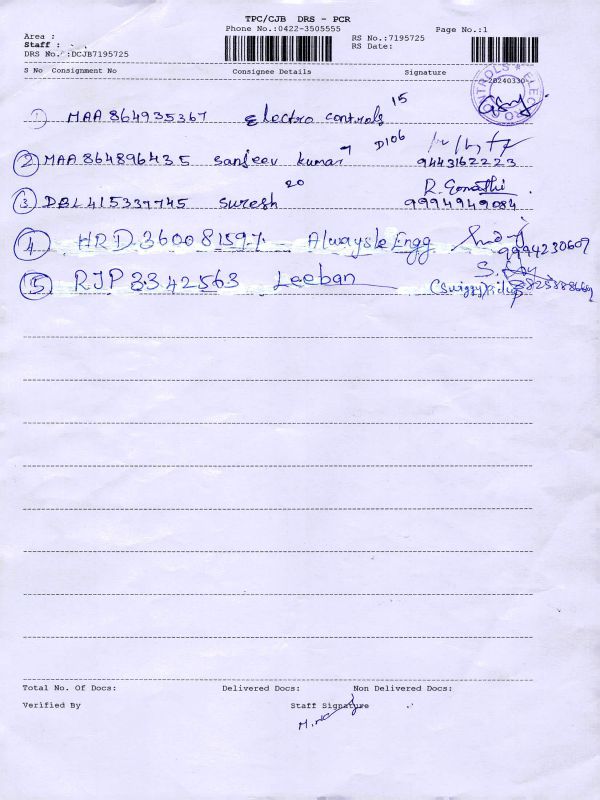 TPC/CJB DRS - PCR
Phone No.:0422-3505555
Page No.:1
Area :
RS No.:7195725
Staff :
RS Date:
DRS No.:DCJB7195725
S No Consignment No Consignee Details Signature
20240330
CONTROLS ELECTRO
1 MAA 864935367 Electro controls 15
2 MAA 864896435 Sanjeev kumar 7 D106
9443162223
3 DBL 415337745 Suresh 20 R. Gomathi
9994949084
4 HRD 36008159 Alwayske Engg
9994230607
5 RJP 3342563 Leeban S.
(Swiggy)
Total No. Of Docs: Delivered Docs: Non Delivered Docs:
Verified By Staff Signature